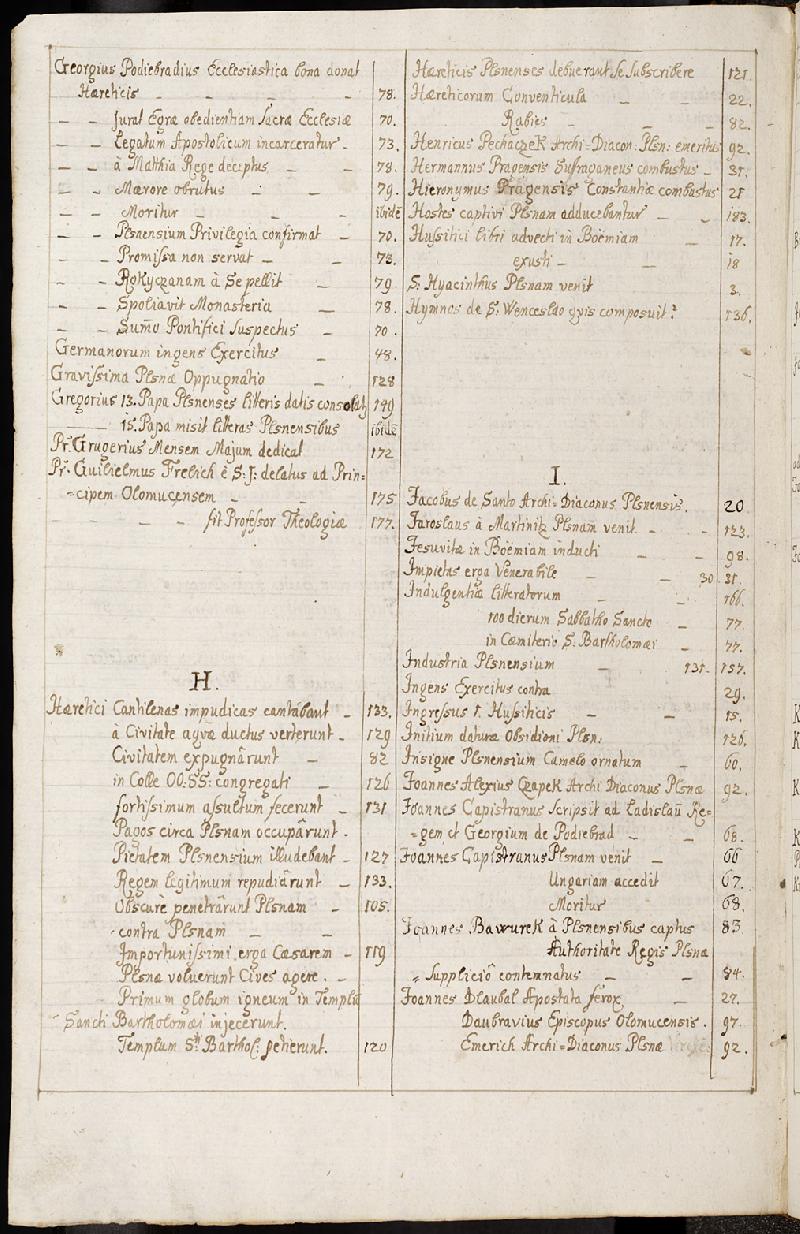 Georgius Podiebradius Ecclesiastica bona donat
Hæreticis - - - - - 78.
- - jurat Egræ obedientiam Sacræ Ecclesiæ 70.
- - Legatum Apostolicum incarceratur - 73.
- - à Matthia Rege deceptus - - 78.
- - Mærore obrutus - - 79.
- - Moritur - - - ibidē
- - Plsnensium Privilegia confirmat - 70.
- - Promissa non servat - - 78.
- - Rokyczanam à Se pellit - 79
- - Spoliavit Monasteria - 78.
- - Sumo Pontifici Suspectus - 70.
Germanorum ingens Exercitus - 48.
Gravissima Plsnæ Oppugnatio - 128
Gregorius 13. Papa Plsnenses litteris datis consolat 149
15. Papa misit litteras Plsnensibus ibidē
Pr. Grugerius Mensem Majum dedicat 172
Pr. Guilielmus Frelich è S: J: delatus ad Prin=
=cipem Olomucensem - - 175
- - - fit Professor Theologiæ 177.
H.
Hæretici Cantilenas impudicas cantabant - 133.
à Civitate aquæ ductus verterunt - 129
Civitatem expugnârunt - 82
in Colle OO: SS: congregati - 126
fortissimum assultum fecerunt - 131
Pagos circa Plsnam occupârunt -
Pietatem Plsnensium illudebant - 127
Regem legitimum repudiârunt - 133.
Obscurè penetrârunt Plsnam - 105.
contra Plsnam - - -
Importunissimi erga Cæsarem - 119
Plsnæ voluerunt Cives agere. -
Primum globum igneum in Templū
Sancti Bartholomæi injecerunt.
Templum Sti Barthol: petierunt. 120
Hæreticis Plsnenses debuerant Se Subscribere 121.
Hæreticorum Conventicula - - 22.
Rabies - - - 82.
Henricus Pechaczek Archi-Diacon: Plsn: emeritus 92.
Hermannus Pragensis Suffraganeus combustus - 31.
Hieronymus Pragensis Constantiæ combustus 21
Hostes captivi Plsnam adducebantur - - 183.
Hussitici libri advecti in Boëmiam - 17.
exusti - - 18
S. Hyacinthus Plsnam venit 3.
Hymnos de S. Wenceslao quis composuit? 136.
I.
Jacobus de Santo Archi=Diaconus Plsnensis. 20
Jaroslaus à Martinitz Plsnam venit - - 123.
Jesuitæ in Boëmiam inducti - - 98.
Impietas erga Venerabile - - 30. 31.
Indulgentiæ litteratorum - - 166.
100 dierum Sabbatho Sancto - 77.
in Cœmiterio S. Bartholomæi - 77.
Industria Plsnensium - 131. 157.
Ingens Exercitus contra 29.
Ingressus 1. Hussiticis - - 15.
Initium daturæ Obsidioni Plsn. 126.
Insigne Plsnensium Camelo ornatum - 60.
Joannes Alexius Czapek Archi Diaconus Plsnæ 92.
Joannes Capistranus Scripsit ad Ladislaū Re=
=gem, et Georgium de Podiebrad - - 68.
Joannes Capistranus Plsnam venit - 66
Ungariam accedit 67.
Moritur 68.
Joannes Bawurek à Plsnensibus captus 83.
Authoritate Regis Plsnæ
= Supplicio contemnatus - - 84.
Joannes Dlaubal Apostata ferox - 27.
Daubravius Episcopus Olomucensis. 97.
Emerich Archi=Diaconus Plsnæ 92.